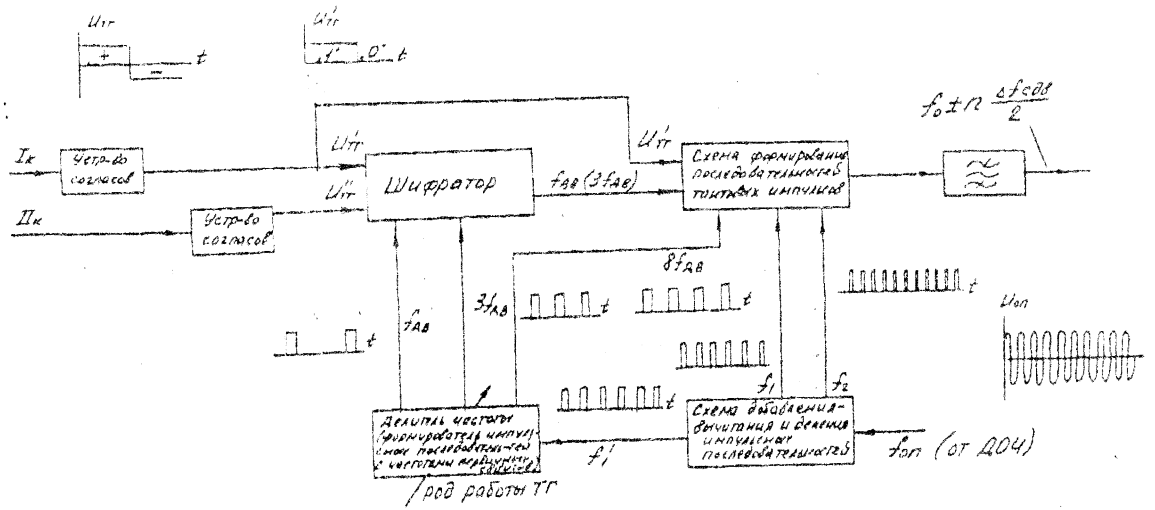 Uтг
+
−
t
U'тг
"1"
"0"
t
f₀ ± n Δfсдв/2
Iк
Устр-во
согласов
U'тг
U''тг
Шифратор
fдв (3fдв)
U'тг
Схема формирования
последовательностей
тактовых импулков
IIк
Устр-во
согласов
fдв
3fдв
8fдв
t
t
t
t
t
Uоп
f₁
f₂
Делитель частоты
(формирователь импул
сное последователь-тей
с частотами первичных
f₁'
Схема добавления-
вычитания и деления
импульсных
последовательностей
fоп (от ДОЧ)
род работы ТГ